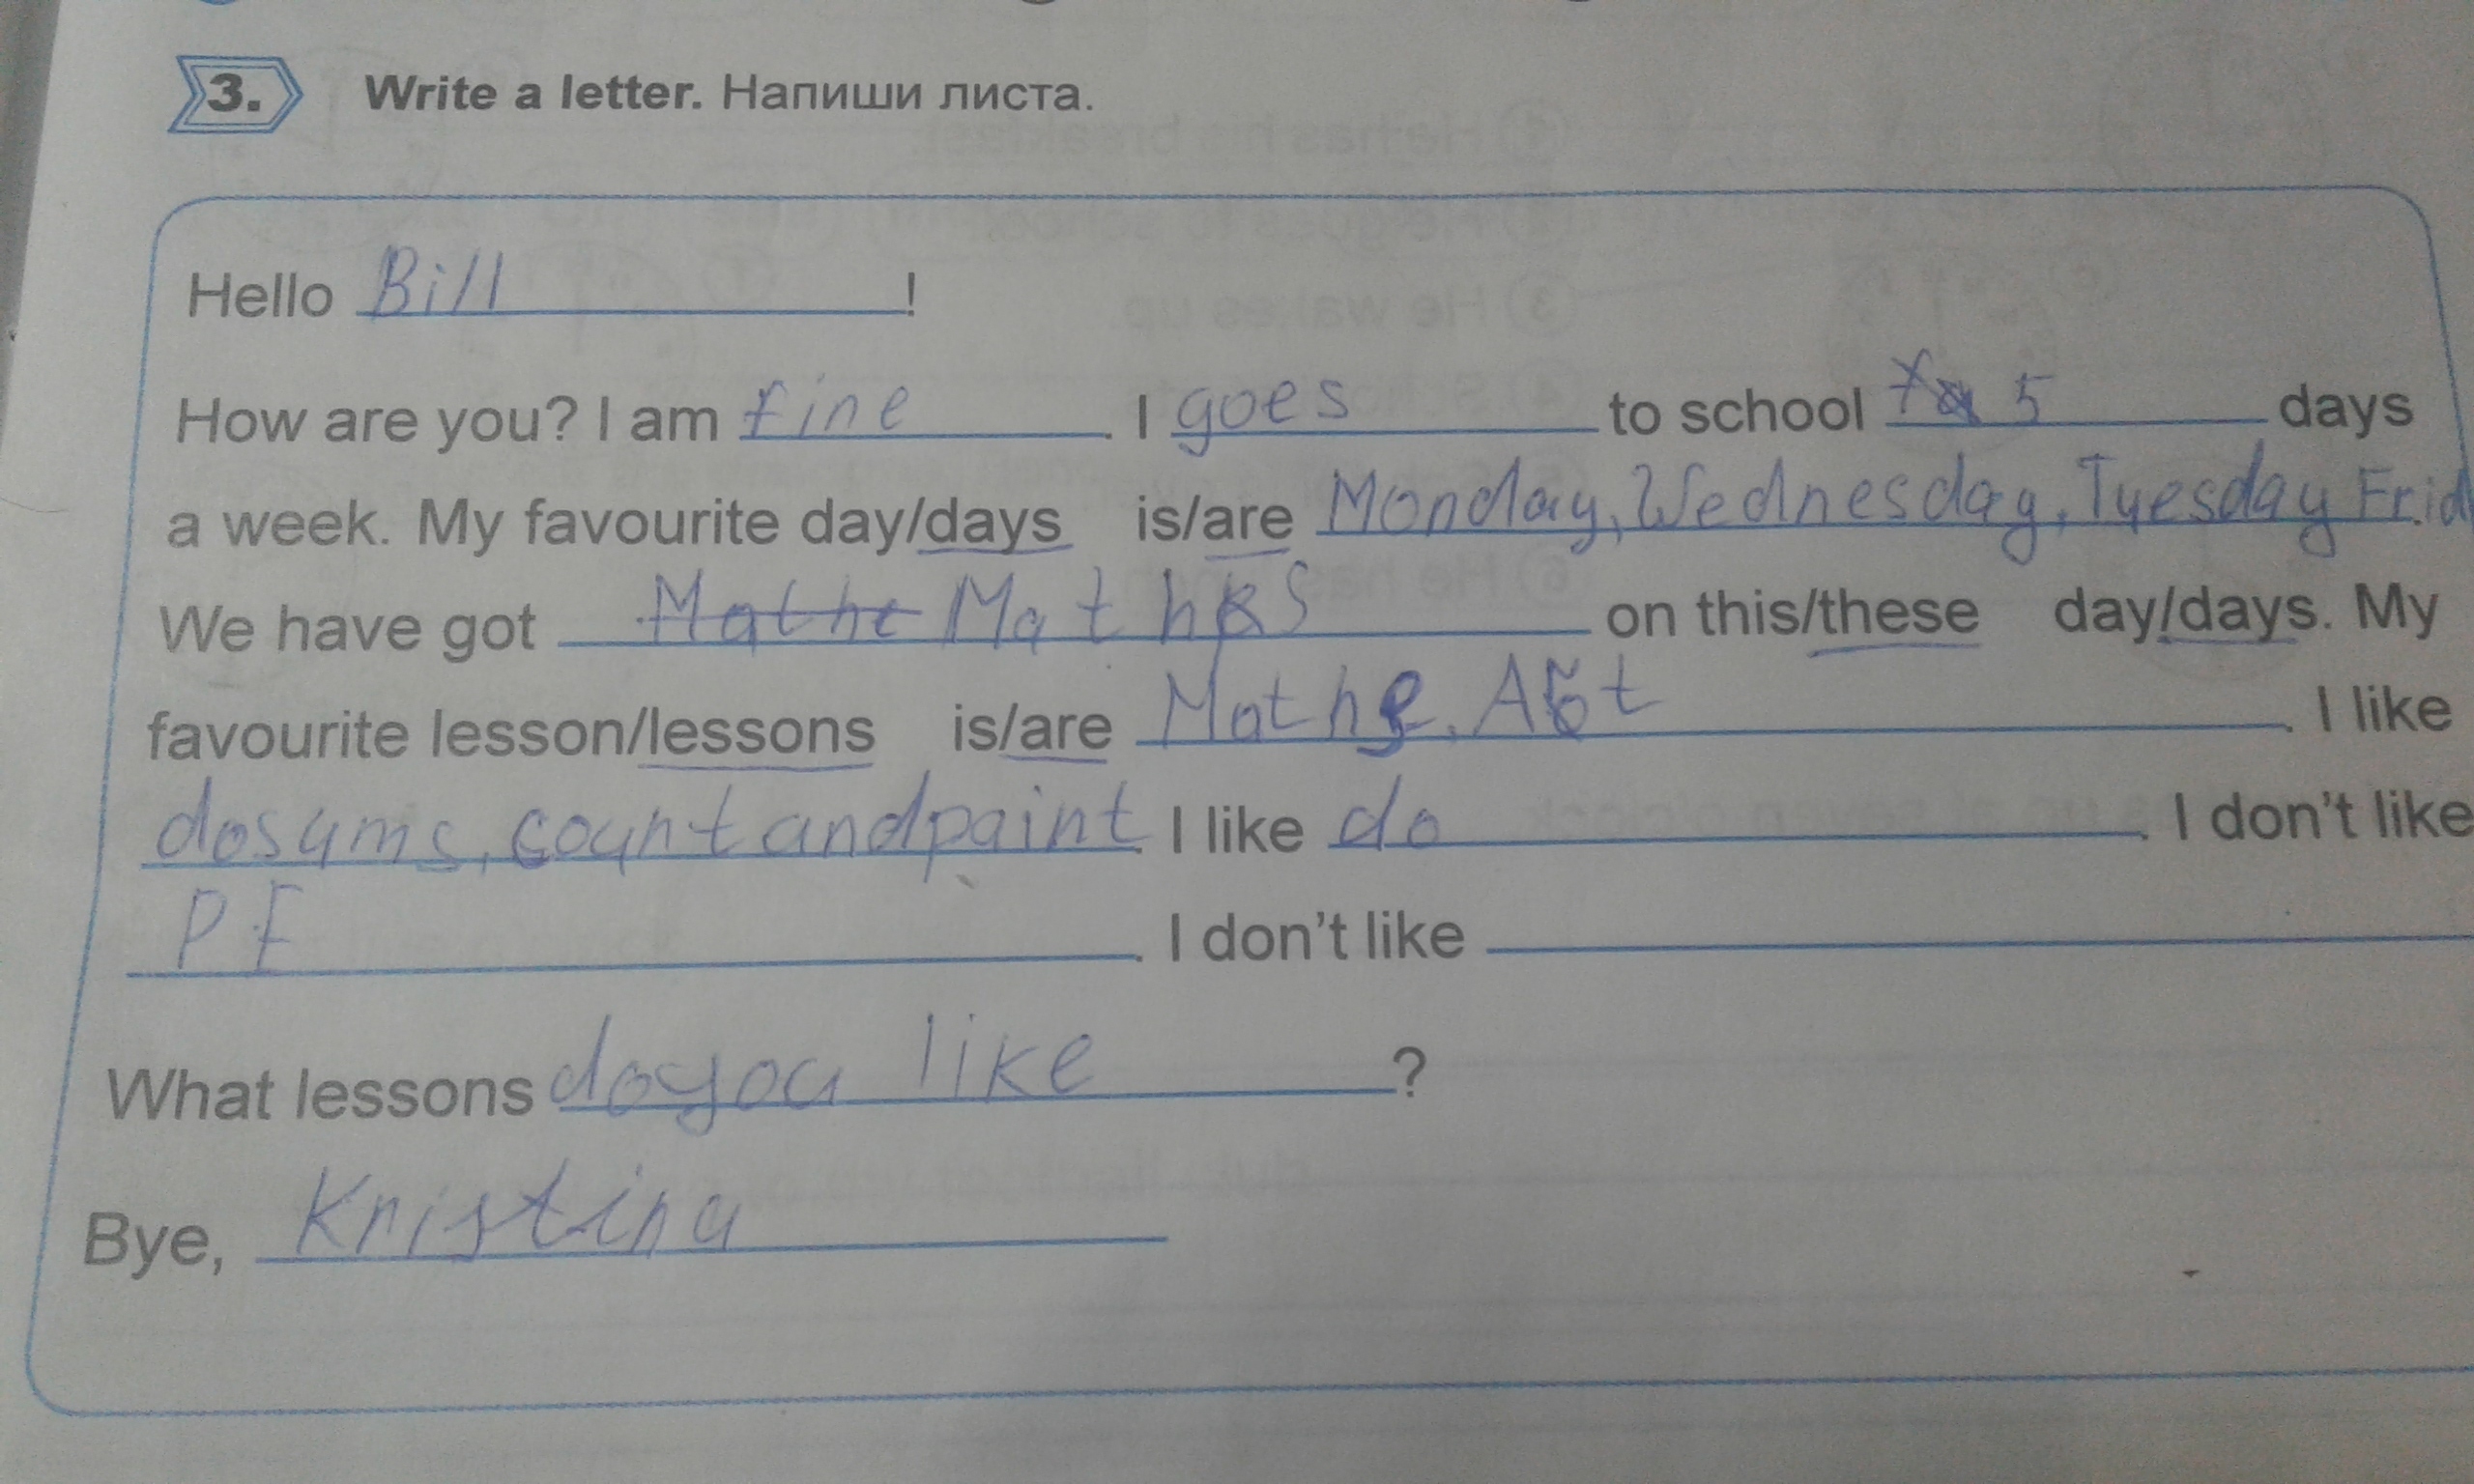 3. Write a letter. Напиши листа.
Hello Bill !
How are you? I am fine. I goes to school 5 days
a week. My favourite day/days is/are Monday, Wednesday, Tuesday Frid
We have got Mathe Maths on this/these day/days. My
favourite lesson/lessons is/are Maths, Art. I like
do sums, count and paint. I like do. I don't like
PE. I don't like
What lessons do you like ?
Bye, Kristina